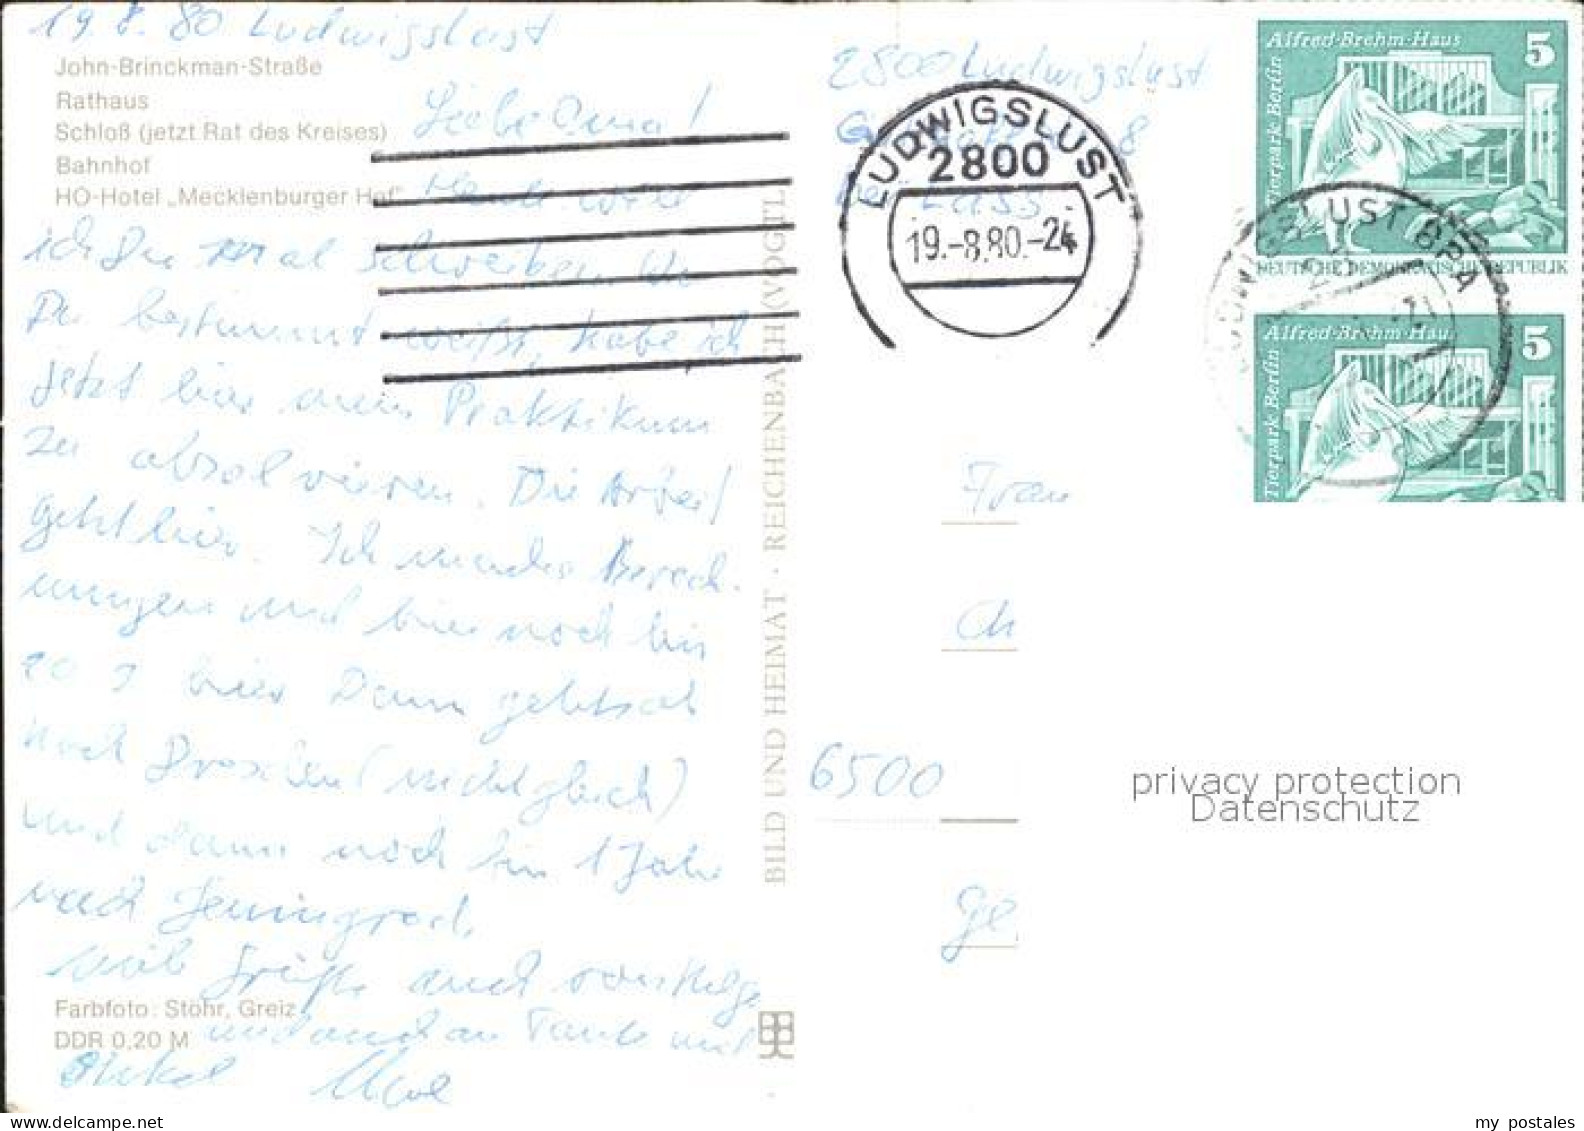 19.8.80 Ludwigslust
John-Brinckman-Straße
Rathaus
Schloß (jetzt Rat des Kreises)
Bahnhof
HO-Hotel „Mecklenburger Hof"
Liebe Oma!
Heute will
ich Dir mal schreiben. Wie
Du bestimmt weißt, habe ich
jetzt hier mein Praktikum
zu absolvieren. Die Arbeit
geht hier. Ich mache Berech-
nungen und bin noch bis
20.9 hier Dann geht's ab
nach Dresden (nicht gleich)
und dann noch für 1 Jahr
nach Leningrad.
Viele Grüße auch von Helga
und auch an Tante und
Onkel
Farbfoto: Stöhr, Greiz
DDR 0,20 M
BILD UND HEIMAT · REICHENBACH (VOGTL
2800 Ludwigslust
8
LUDWIGSLUST
2800
19.-8.80.-24
Alfred-Brehm-Haus 5
Tierpark Berlin
DEUTSCHE DEMOKRATISCHE REPUBLIK
LUDWIGSLUST BPA
Alfred-Brehm-Hau 5
Tierpark Berlin
Frau
Ch
6500
Ge
privacy protection
Datenschutz
my postales